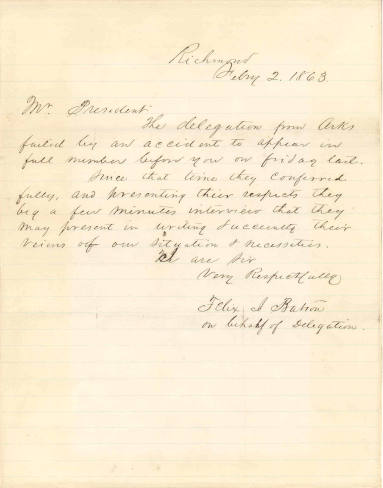 Richmond
Febry 2. 1863.
Mr. President
The delegation from Arks
failed by an accident to appear in
full number before you on friday last.
Since that time they conferred
fully, and presenting their respects they
beg a few minutes interview that they
may present in writing succinctly their
views of our situation & necessities.
We are Sir
Very Respectfully
Felix I Batson
on behalf of Delegation.